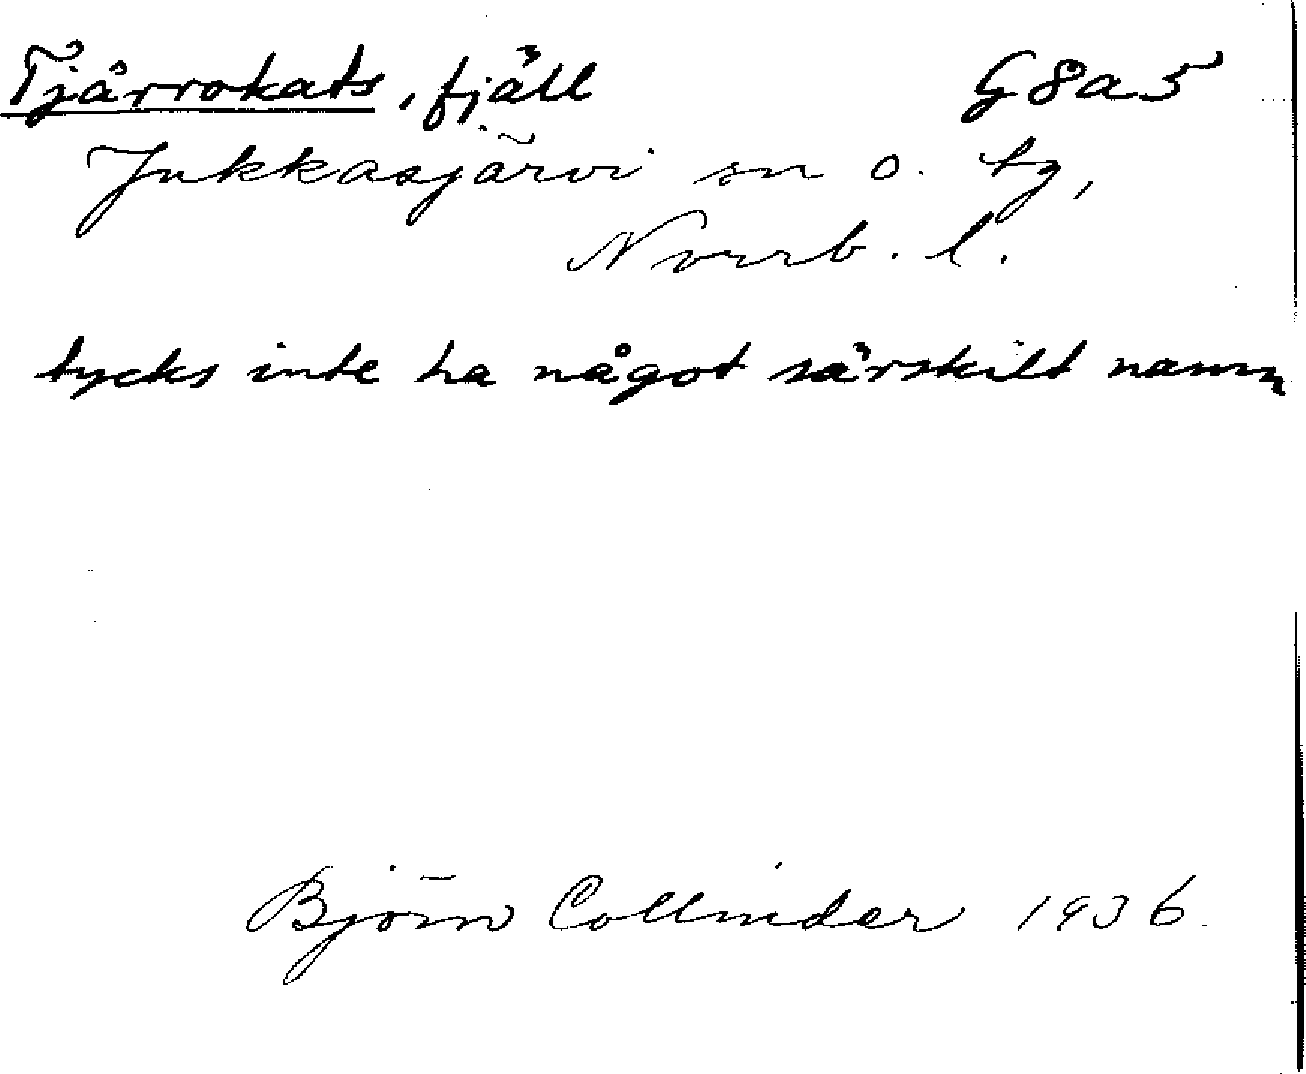 Tjårrokats, fjäll G8a5
Jukkasjärvi sn o. tg,
Norrb. l.
tycks inte ha något särskilt namn
Björn Collinder 1936